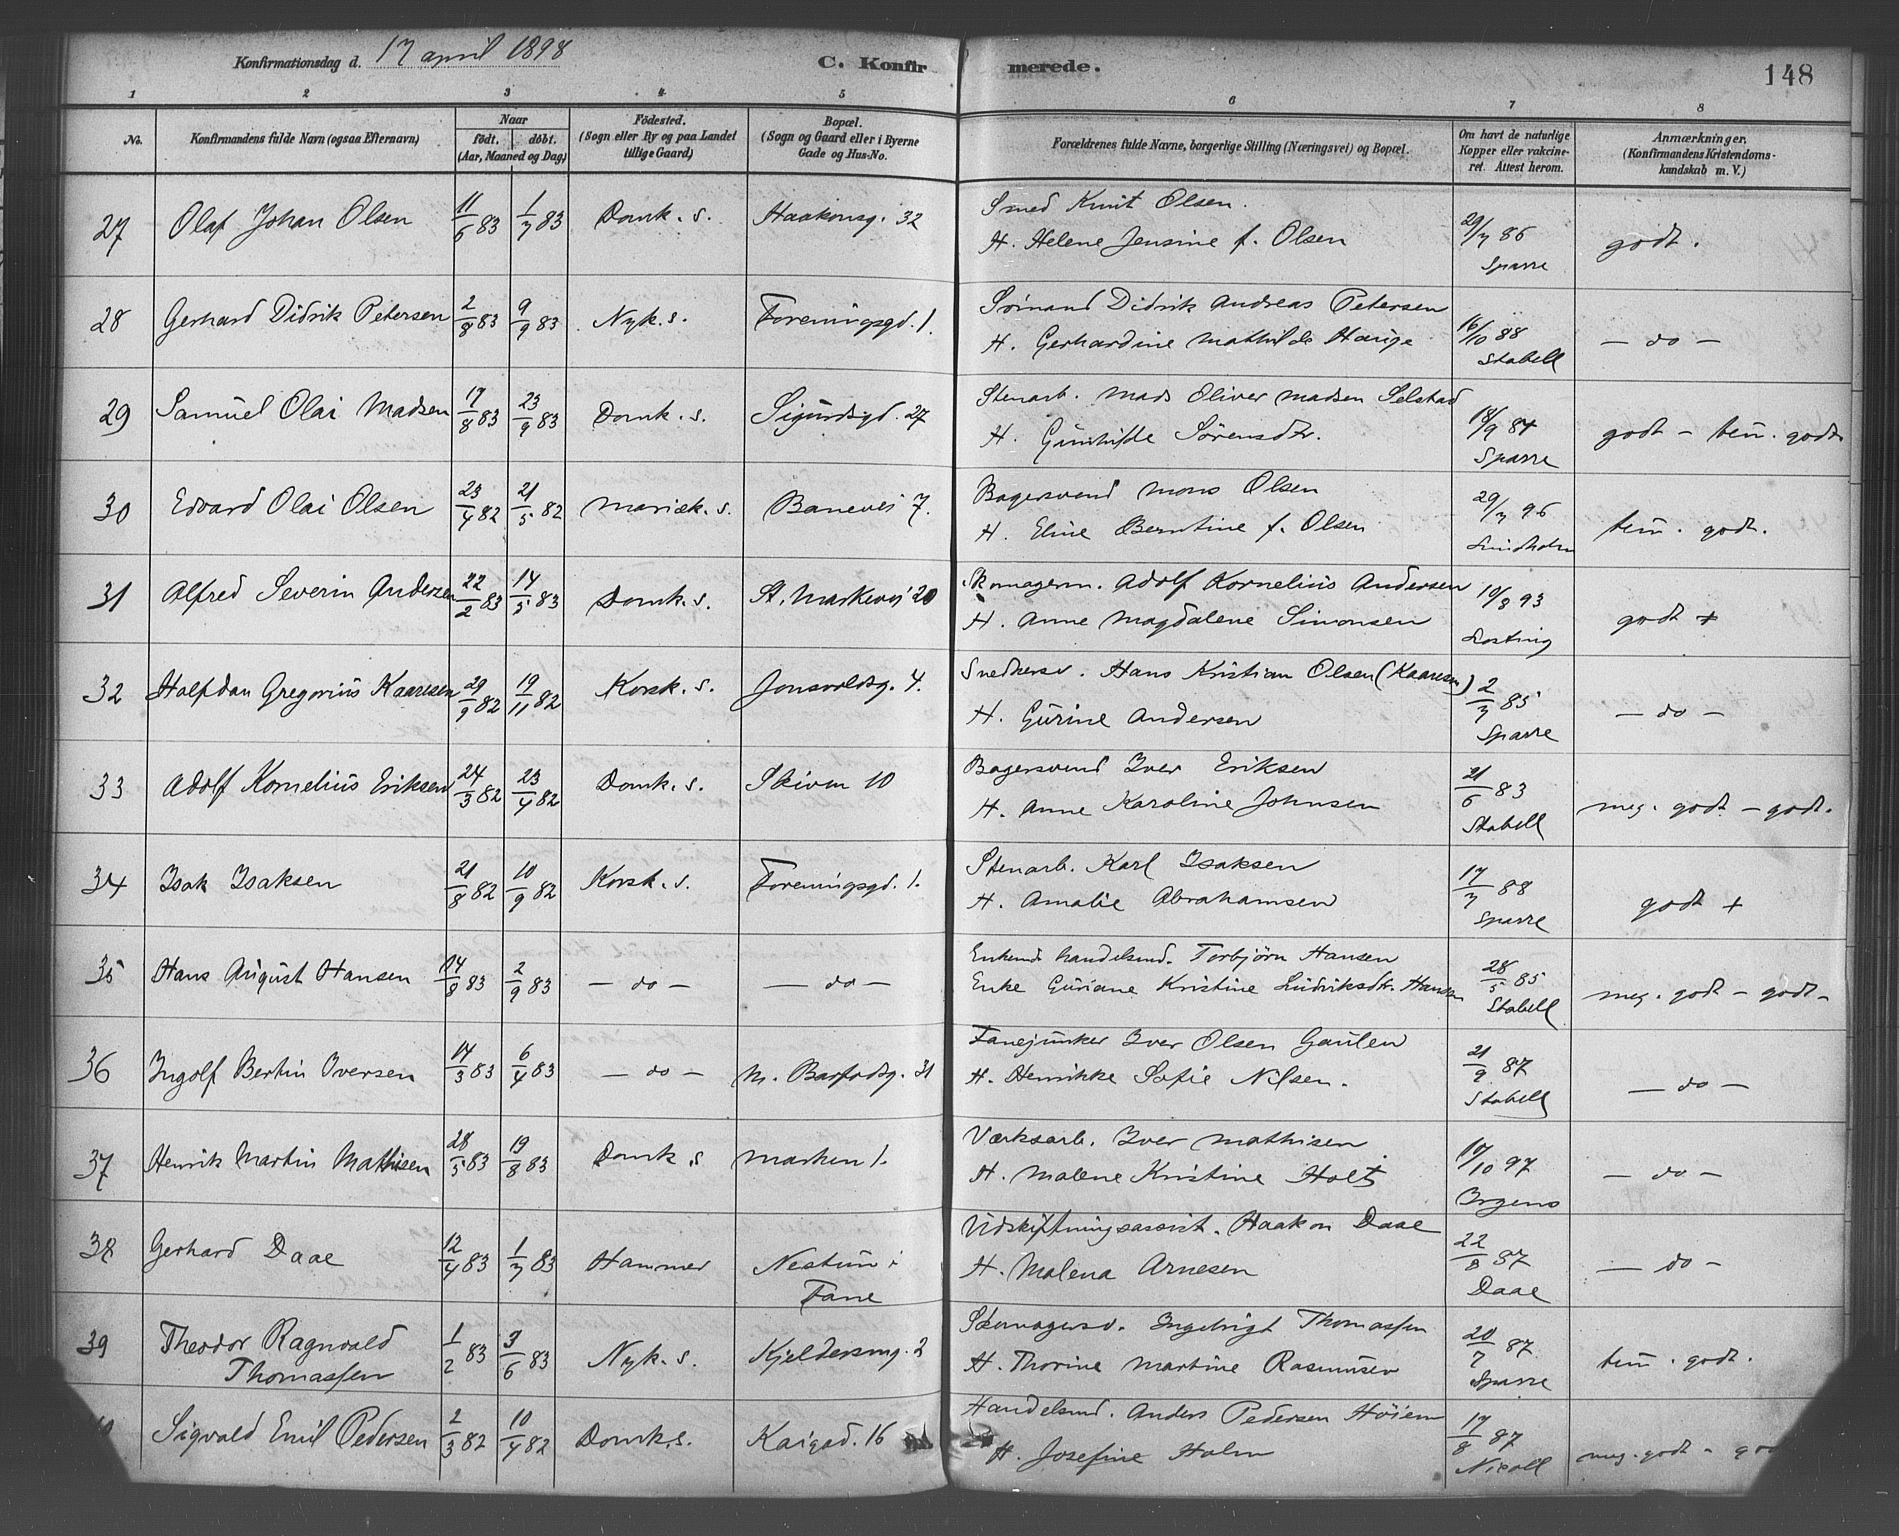 Konfirmationsdag d. 17 april 1898
C. Konfirmerede.
148
1 2 3 4 5 6 7 8
No.
Konfirmandens fulde Navn (ogsaa Efternavn)
Naar
født. døbt.
(Aar, Maaned og Dag)
Fødested.
(Sogn eller By og paa Landet
tillige Gaard)
Bopæl.
(Sogn og Gaard eller i Byerne
Gade og Hus-No.
Forældrenes fulde Navne, borgerlige Stilling (Næringsvei) og Bopæl.
Om havt de naturlige
Kopper eller vakcine-
ret. Attest herom.
Anmærkninger.
(Konfirmandens Kristendoms-
kundskab m. V.)
27 Olaf Johan Olsen 11/6 83 1/7 83 Domk. s. Haakonsg. 32
Smed Knut Olsen.
H. Helene Jensine f. Olsen
29/7 86
Sparre
godt.
28 Gerhard Didrik Petersen 2/8 83 9/9 83 Nyk. s. Foreningsgd. 1.
Sömand Didrik Andreas Petersen
H. Gerhardine Mathilde Hauge
16/10 88
Stabell
— do —
29 Samuel Olai Madsen 17/8 83 23/9 83 Domk. s. Sigurdsgd. 27
Stenarb. Mads Oliver Madsen Selstad
H. Gunhilde Sørensdtr.
18/9 84
Sparre
godt — tem. godt
30 Edvard Olai Olsen 23/4 82 21/5 82 Mariæk. s. Banevei 7.
Bagersvend Mons Olsen
H. Eline Berntine f. Olsen
29/7 96
Lindholm
tem. godt.
31 Alfred Severin Andersen 22/2 83 14/5 83 Domk. s. St. Markevei 20
Skomagerm. Adolf Kornelius Andersen
H. Anne Magdalene Simonsen
19/8 93
Losting
godt +
32 Halfdan Gregorius Kaaresen 29/9 82 19/11 82 Korsk. s. Jonsvoldsg. 4.
Snedkersv. Hans Kristian Olsen (Kaaresen)
H. Gurine Andersen
2/7 85
Sparre
— do —
33 Adolf Kornelius Eriksen 24/3 82 23/4 82 Domk. s. Skiven 10
Bagersvend Iver Eriksen
H. Anne Karoline Johnsen
21/6 83
Stabell
meg. godt — godt.
34 Isak Isaksen 21/8 82 10/9 82 Korsk. s. Foreningsgd. 1.
Stenarb. Karl Isaksen
H. Amalie Abrahamsen
17/7 88
Sparre
godt +
35 Hans August Hansen 14/8 83 2/9 83 — do — — do —
handelsmd. Torbjörn Hansen
Enke Guriane Kristine Ludviksdtr. Hansen
28/5 85
Stabell
meg. godt — godt —
36 Ingolf Bertin Iversen 14/3 83 6/4 83 — do — M. Barfodsg. 31
Fanejunker Iver Olsen Gaulen
H. Henrikke Sofie Nilsen.
21/9 87
Stabell
— do —
37 Henrik Martin Mathisen 28/5 83 19/8 83 Domk. s Marken 1.
Værksarb. Iver Mathisen
H. Malene Kristine Holts
19/10 97
Irgens
— do —
38 Gerhard Daae 12/4 83 1/7 83 Hammer Nestun i
Fane
Udskiftningsassist. Haakon Daae
H. Malena Arnesen
22/8 87
Daae
— do —
39 Theodor Ragnvald
Thomassen
1/2 83 3/6 83 Nyk. s. Kjeldersmg. 2
Skomagersv. Ingebrigt Thomassen
H. Thorine Martine Rasmussen
20/7 87
Sparre
tem. godt.
Sigvald Emil Pedersen 2/3 82 10/4 82 Domk. s. Kaigad. 16
Handelsmd. Anders Pedersen Høiem
H. Josefine Holm
17/8 87
Nicoll
meg. godt —